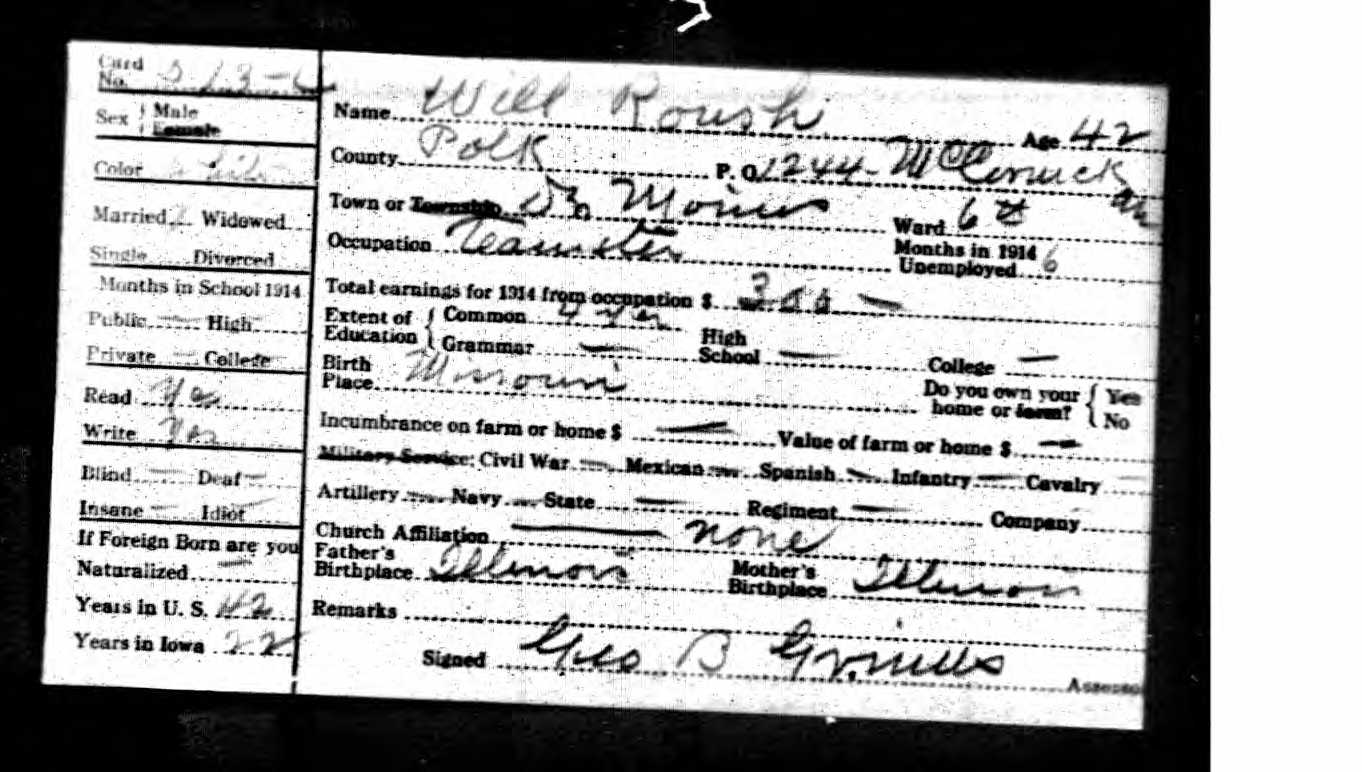 Card No.
Sex Male
Female
Color
Married Widowed
Single Divorced
Months in School 1914
Public — High —
Private — College —
Read Yes
Write Yes
Blind — Deaf —
Insane — Idiot
If Foreign Born are you
Naturalized —
Years in U. S. 42
Years in Iowa 22
Name Will Roush Age 42
County Polk P. O. 1244-
Town or Township Des Moines Ward 6th
Occupation Teamster Months in 1914 Unemployed 6
Total earnings for 1914 from occupation $ 300 —
Extent of Education Common 4 yrs
Grammar — High School — College —
Birth Place Missouri Do you own your home or farm? Yes No
Incumbrance on farm or home $ — Value of farm or home $ —
Military Service: Civil War — Mexican — Spanish — Infantry — Cavalry —
Artillery — Navy — State — Regiment — Company
Church Affiliation — none
Father's Birthplace Illinois Mother's Birthplace Illinois
Remarks
Signed Geo B Assessor